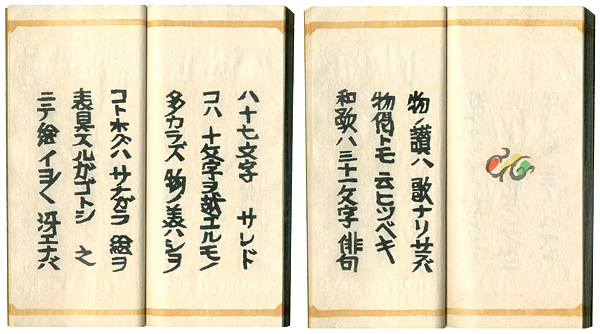 物ノ讃ハ 歌ナリ サレバ
物偈トモ 云ヒツベキ
和歌ハ三十一文字 俳句
ハ十七文字 サレド
コハ 十文字ヲ越エルモノ
多カラズ 物ノ美ハシヲ
コトホグハ サナガラ 絵ヲ
表具スルガゴトシ 之
ニテ絵 イヨ〱 冴エナバ